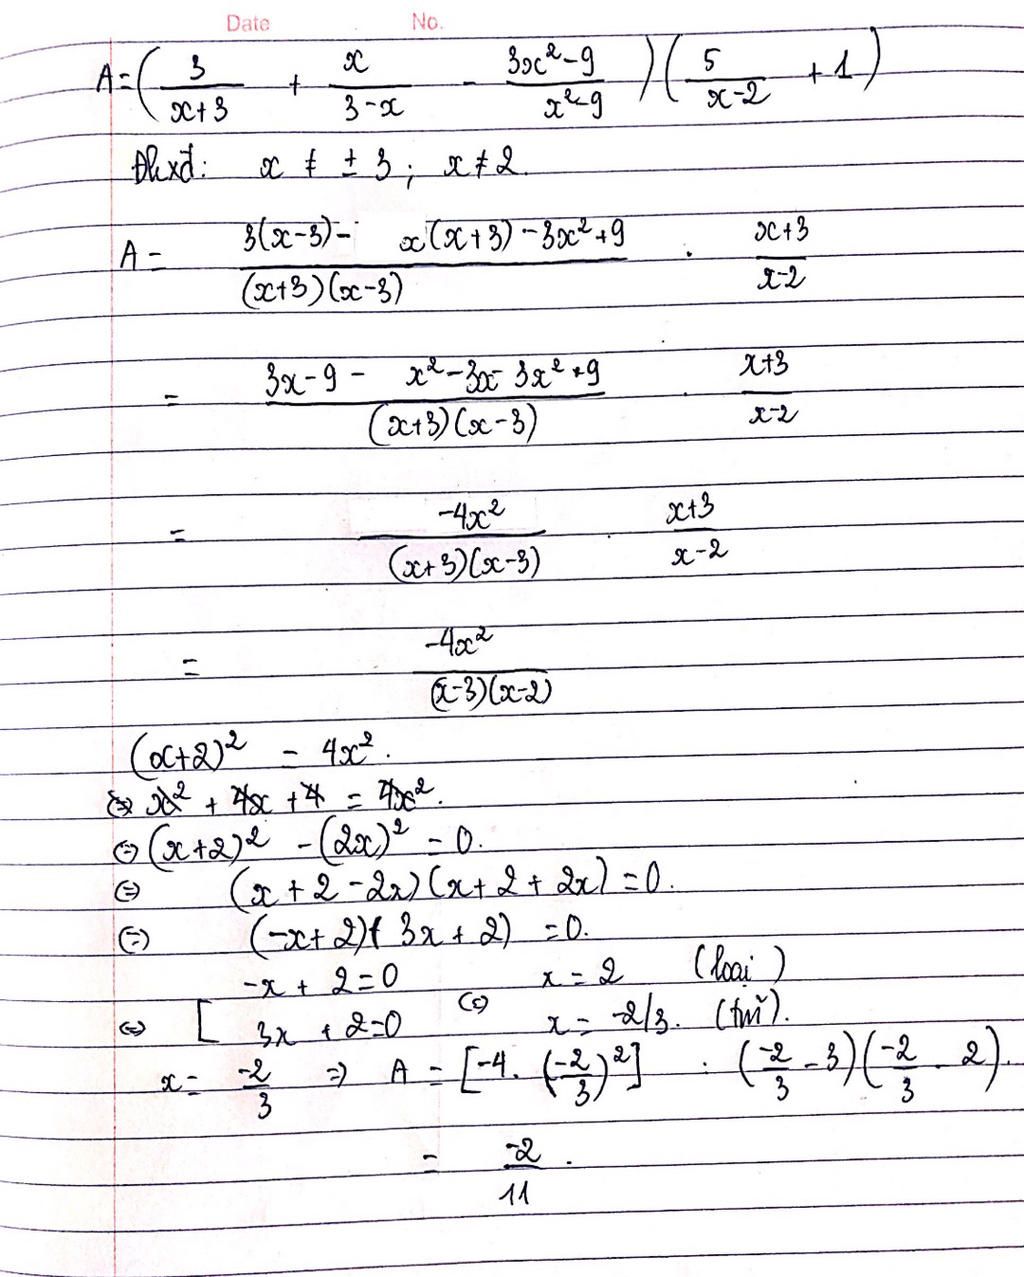 Date No.
A = ( 3/(x+3) + x/(3-x) - (3x²-9)/(x²-9) ) ( 5/(x-2) + 1 )
Đkxđ: x ≠ ± 3 ; x ≠ 2.
A = (3(x-3) - x(x+3) - 3x²+9)/((x+3)(x-3)) . (x+3)/(x-2)
= (3x-9 - x²-3x- 3x²+9)/((x+3)(x-3)) . (x+3)/(x-2)
= (-4x²)/((x+3)(x-3)) . (x+3)/(x-2)
= (-4x²)/((x-3)(x-2))
(x+2)² = 4x².
⇔ x² + 4x + 4 = 4x².
⇔ (x+2)² - (2x)² = 0.
⇔ (x + 2 - 2x) (x + 2 + 2x) = 0.
⇔ (-x + 2) ( 3x + 2) = 0.
⇔ [ -x + 2 = 0 ⇔ x = 2 (loại)
3x + 2 = 0 x = -2/3. (tm).
x = -2/3 ⇒ A = [-4. (-2/3)²] : (-2/3 - 3) (-2/3 - 2).
= -2/11.